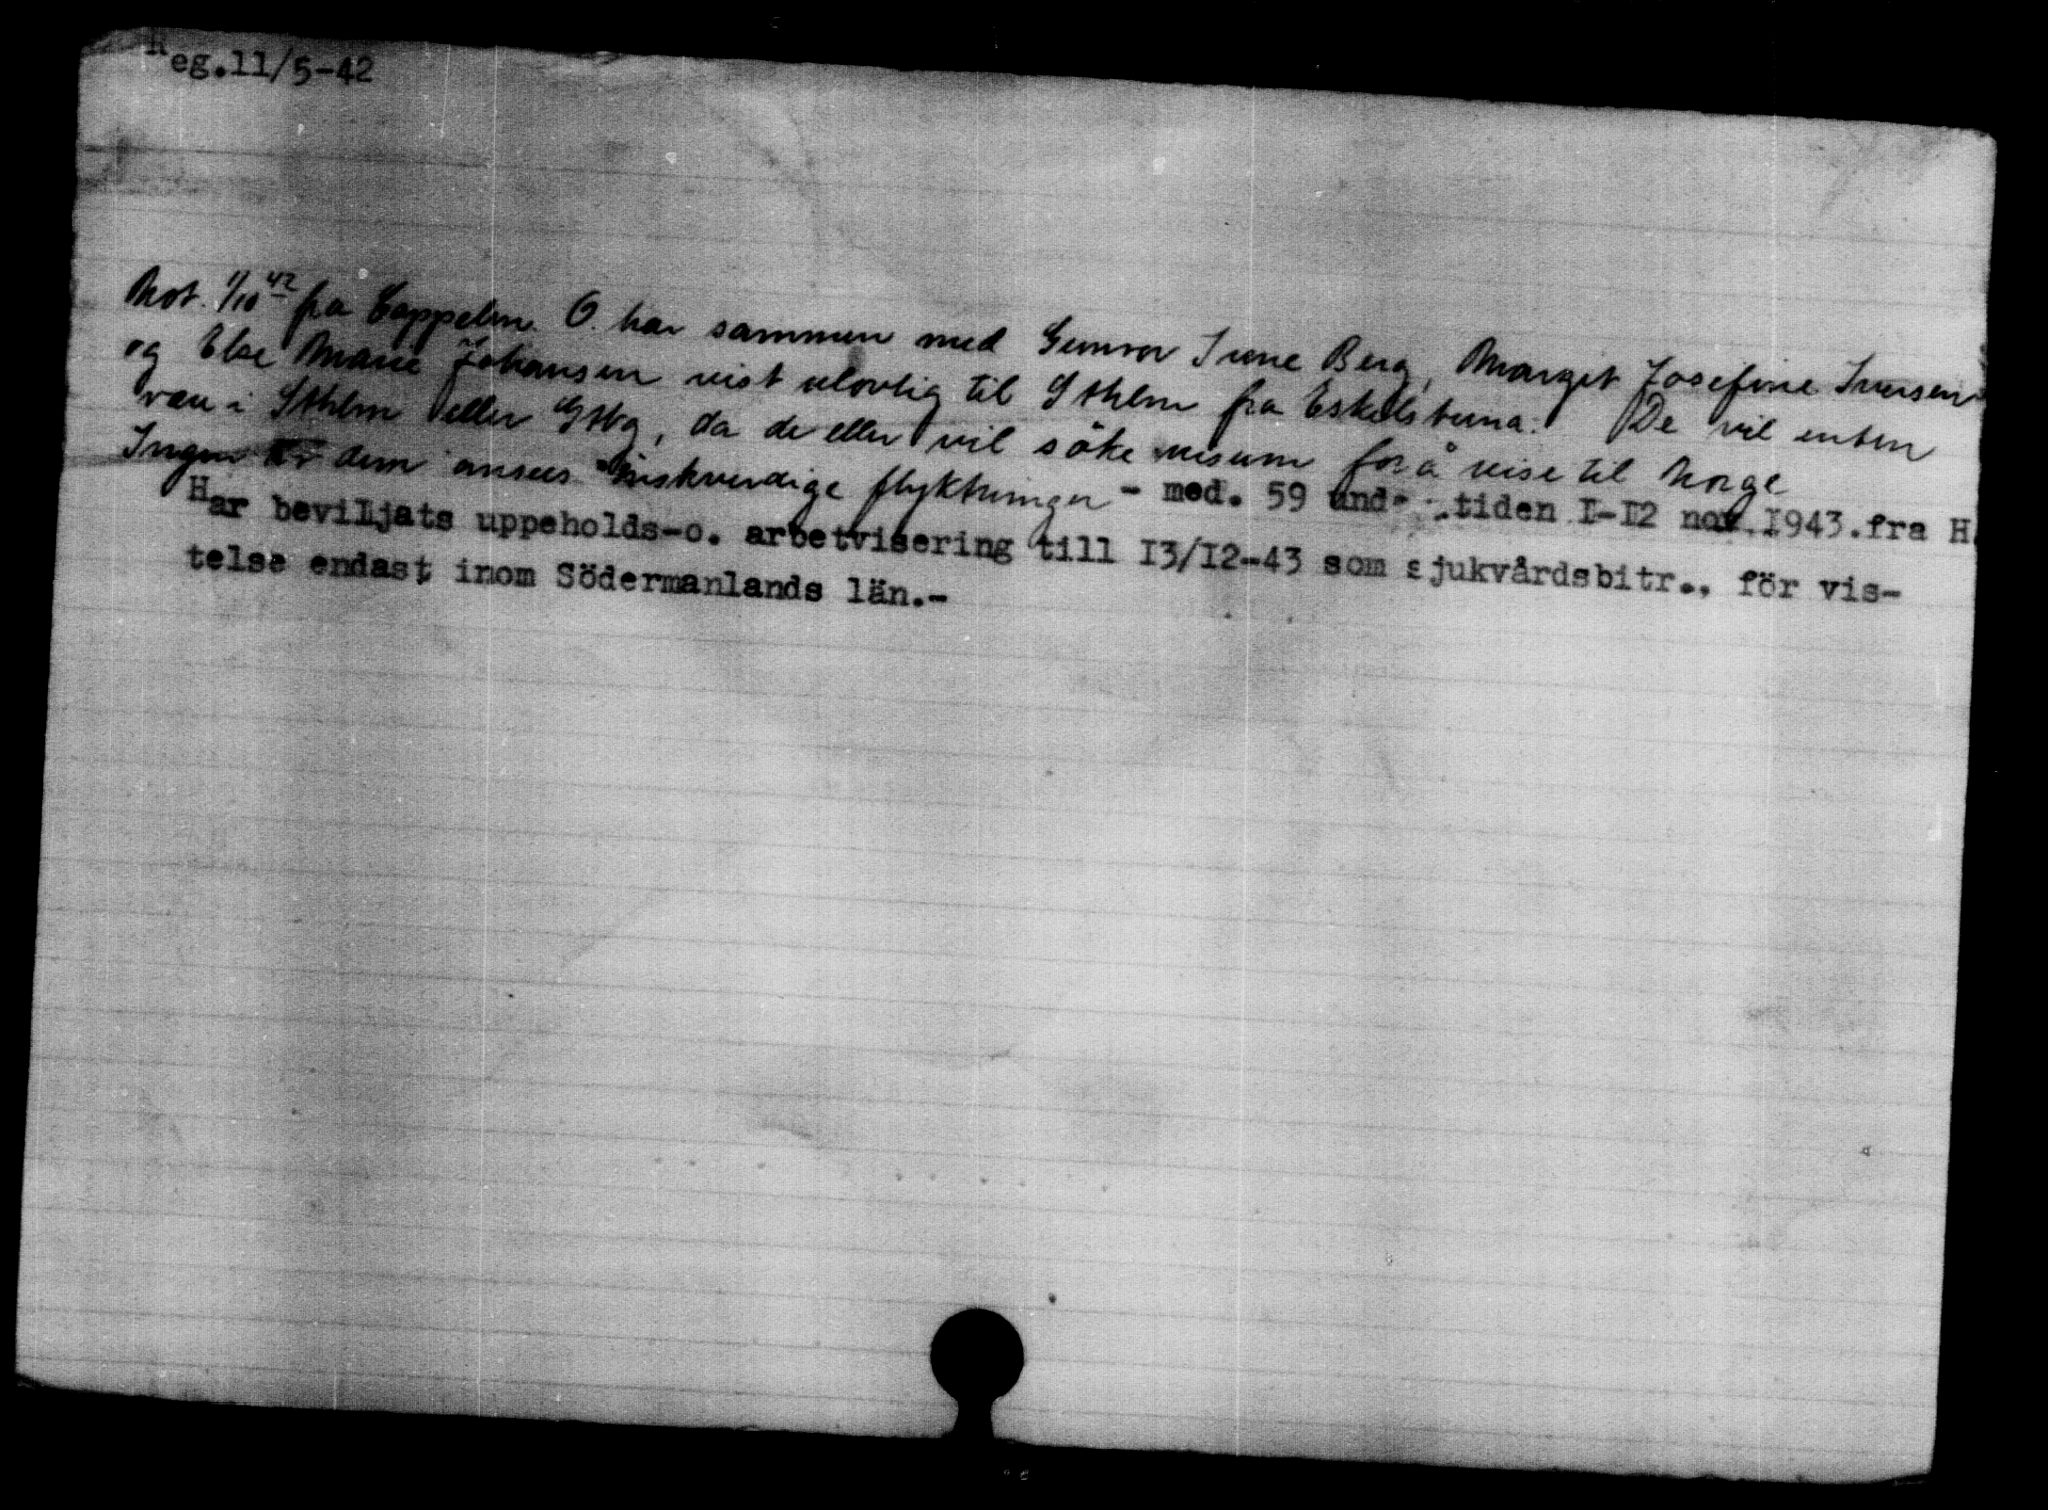 Reg.11/5-42
Not. 1/10 42 fra Cappelen. O. har sammen med Gunvor Irene Berg, Margit Josefine Iversen
og Else Marie Johansen reist ulovlig til Sthlm fra Eskilstuna. De vil enten
være i Sthlm eller Gtbg, da de eller vil söke visum for å reise til Norge
Ingen av dem ansees önskverdige flyktninger - med. 59 und. tiden I-I2 nov. I943.fra H
Har beviljats uppeholds-o. arbetvisering till I3/I2-43 som sjukvårdsbitr., för vis-
telse endast inom Södermanlands län.-